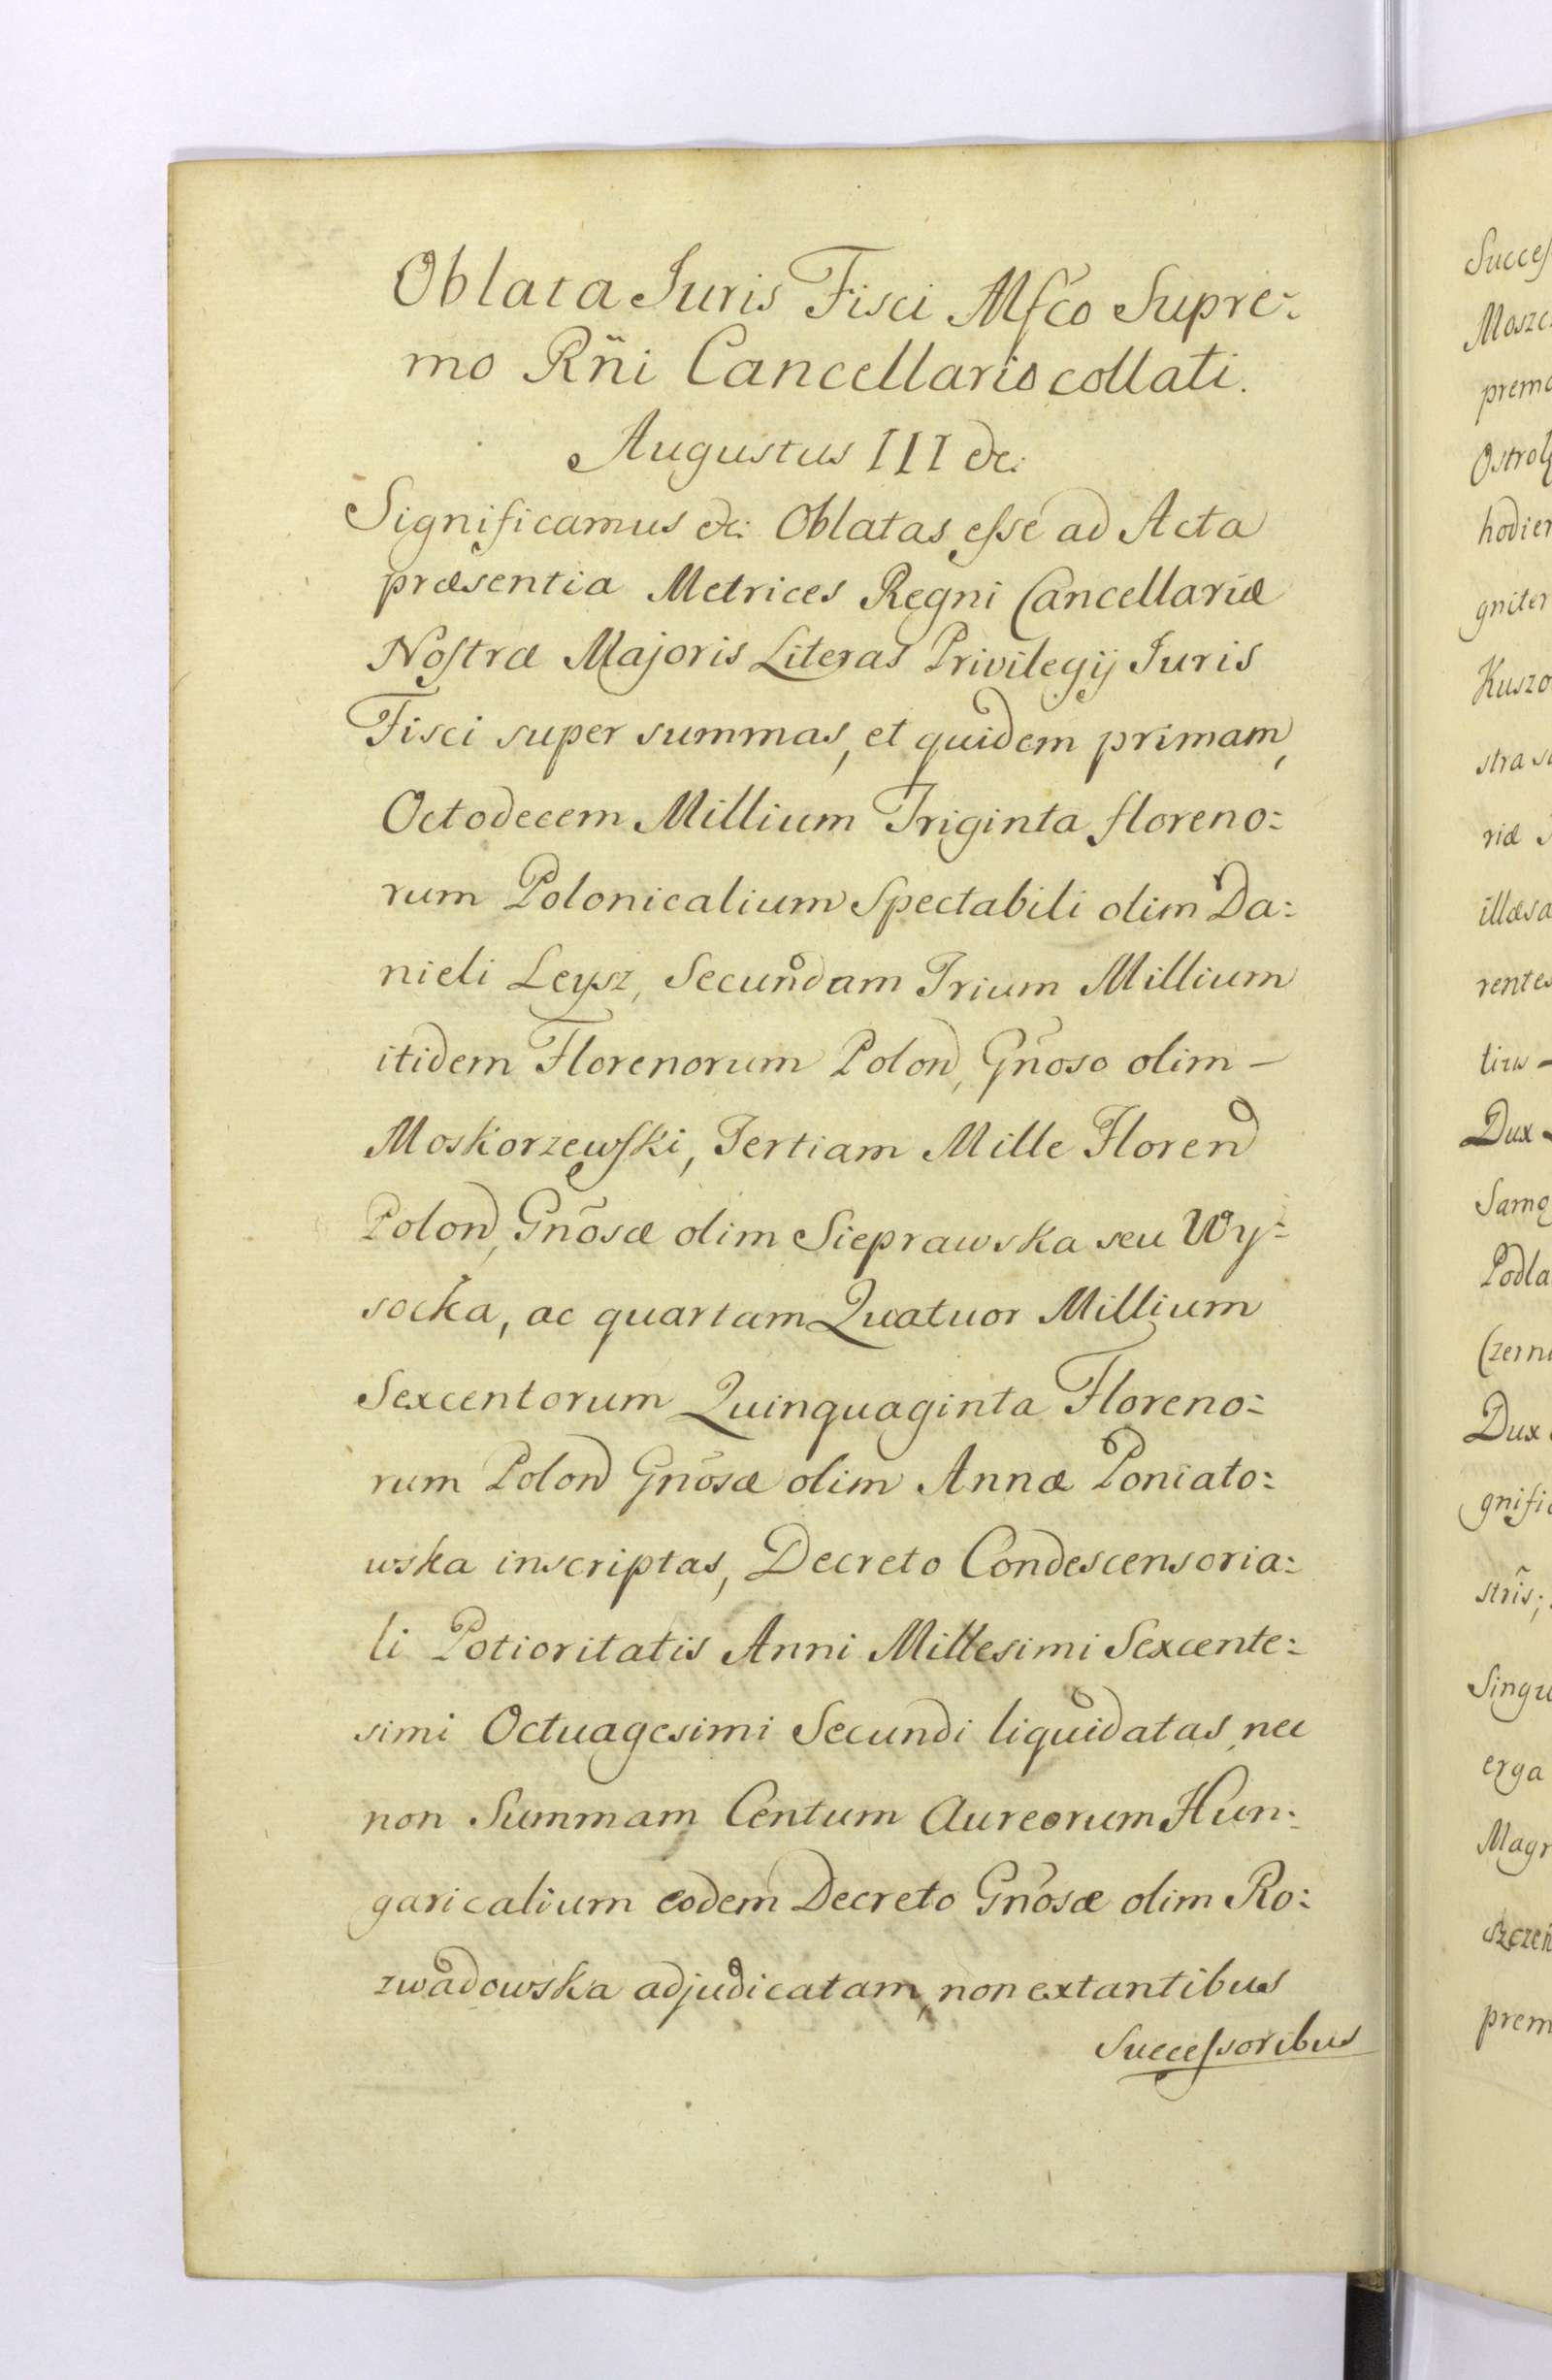 Oblata Juris Fisci Mfco Supre=
mo Rñi Cancellario collati.
Augustus III &c:
Significamus &c: Oblatas esse ad Acta
præsentia Metrices Regni Cancellariæ
Nostræ Majoris Literas Privilegij Juris
Fisci super summas, et quidem primam,
Octodecem Millium Triginta floreno=
rum Polonicalium Spectabili olim Da=
nieli Leysz, Secundam Trium Millium
itidem Florenorum Polon, Gñoso olim –
Moskorzewski, Tertiam Mille Floren
Polon, Gñosæ olim Sieprawska seu Wy=
socka, ac quartam Quatuor Millium
Sexcentorum Quinquaginta Floreno=
rum Polon Gñosæ olim Annæ Poniato=
wska inscriptas, Decreto Condescensoria=
li Potioritatis Anni Millesimi Sexcente=
simi Octuagesimi Secundi liquidatas, nec
non Summam Centum Aureorum Hun=
garicalium eodem Decreto Gñosæ olim Ro=
zwadowska adjudicatam, non extantibus
Successoribus
Succes
Mosze
premo
Ostrol
hodier
gniter
Kuszo
stra
riæ
illæsa
rentes
tius –
Dux
Samo
Podla
Czern
Dux
gnifi
strîs;
Singu
erga
Magn
szczeń
prem